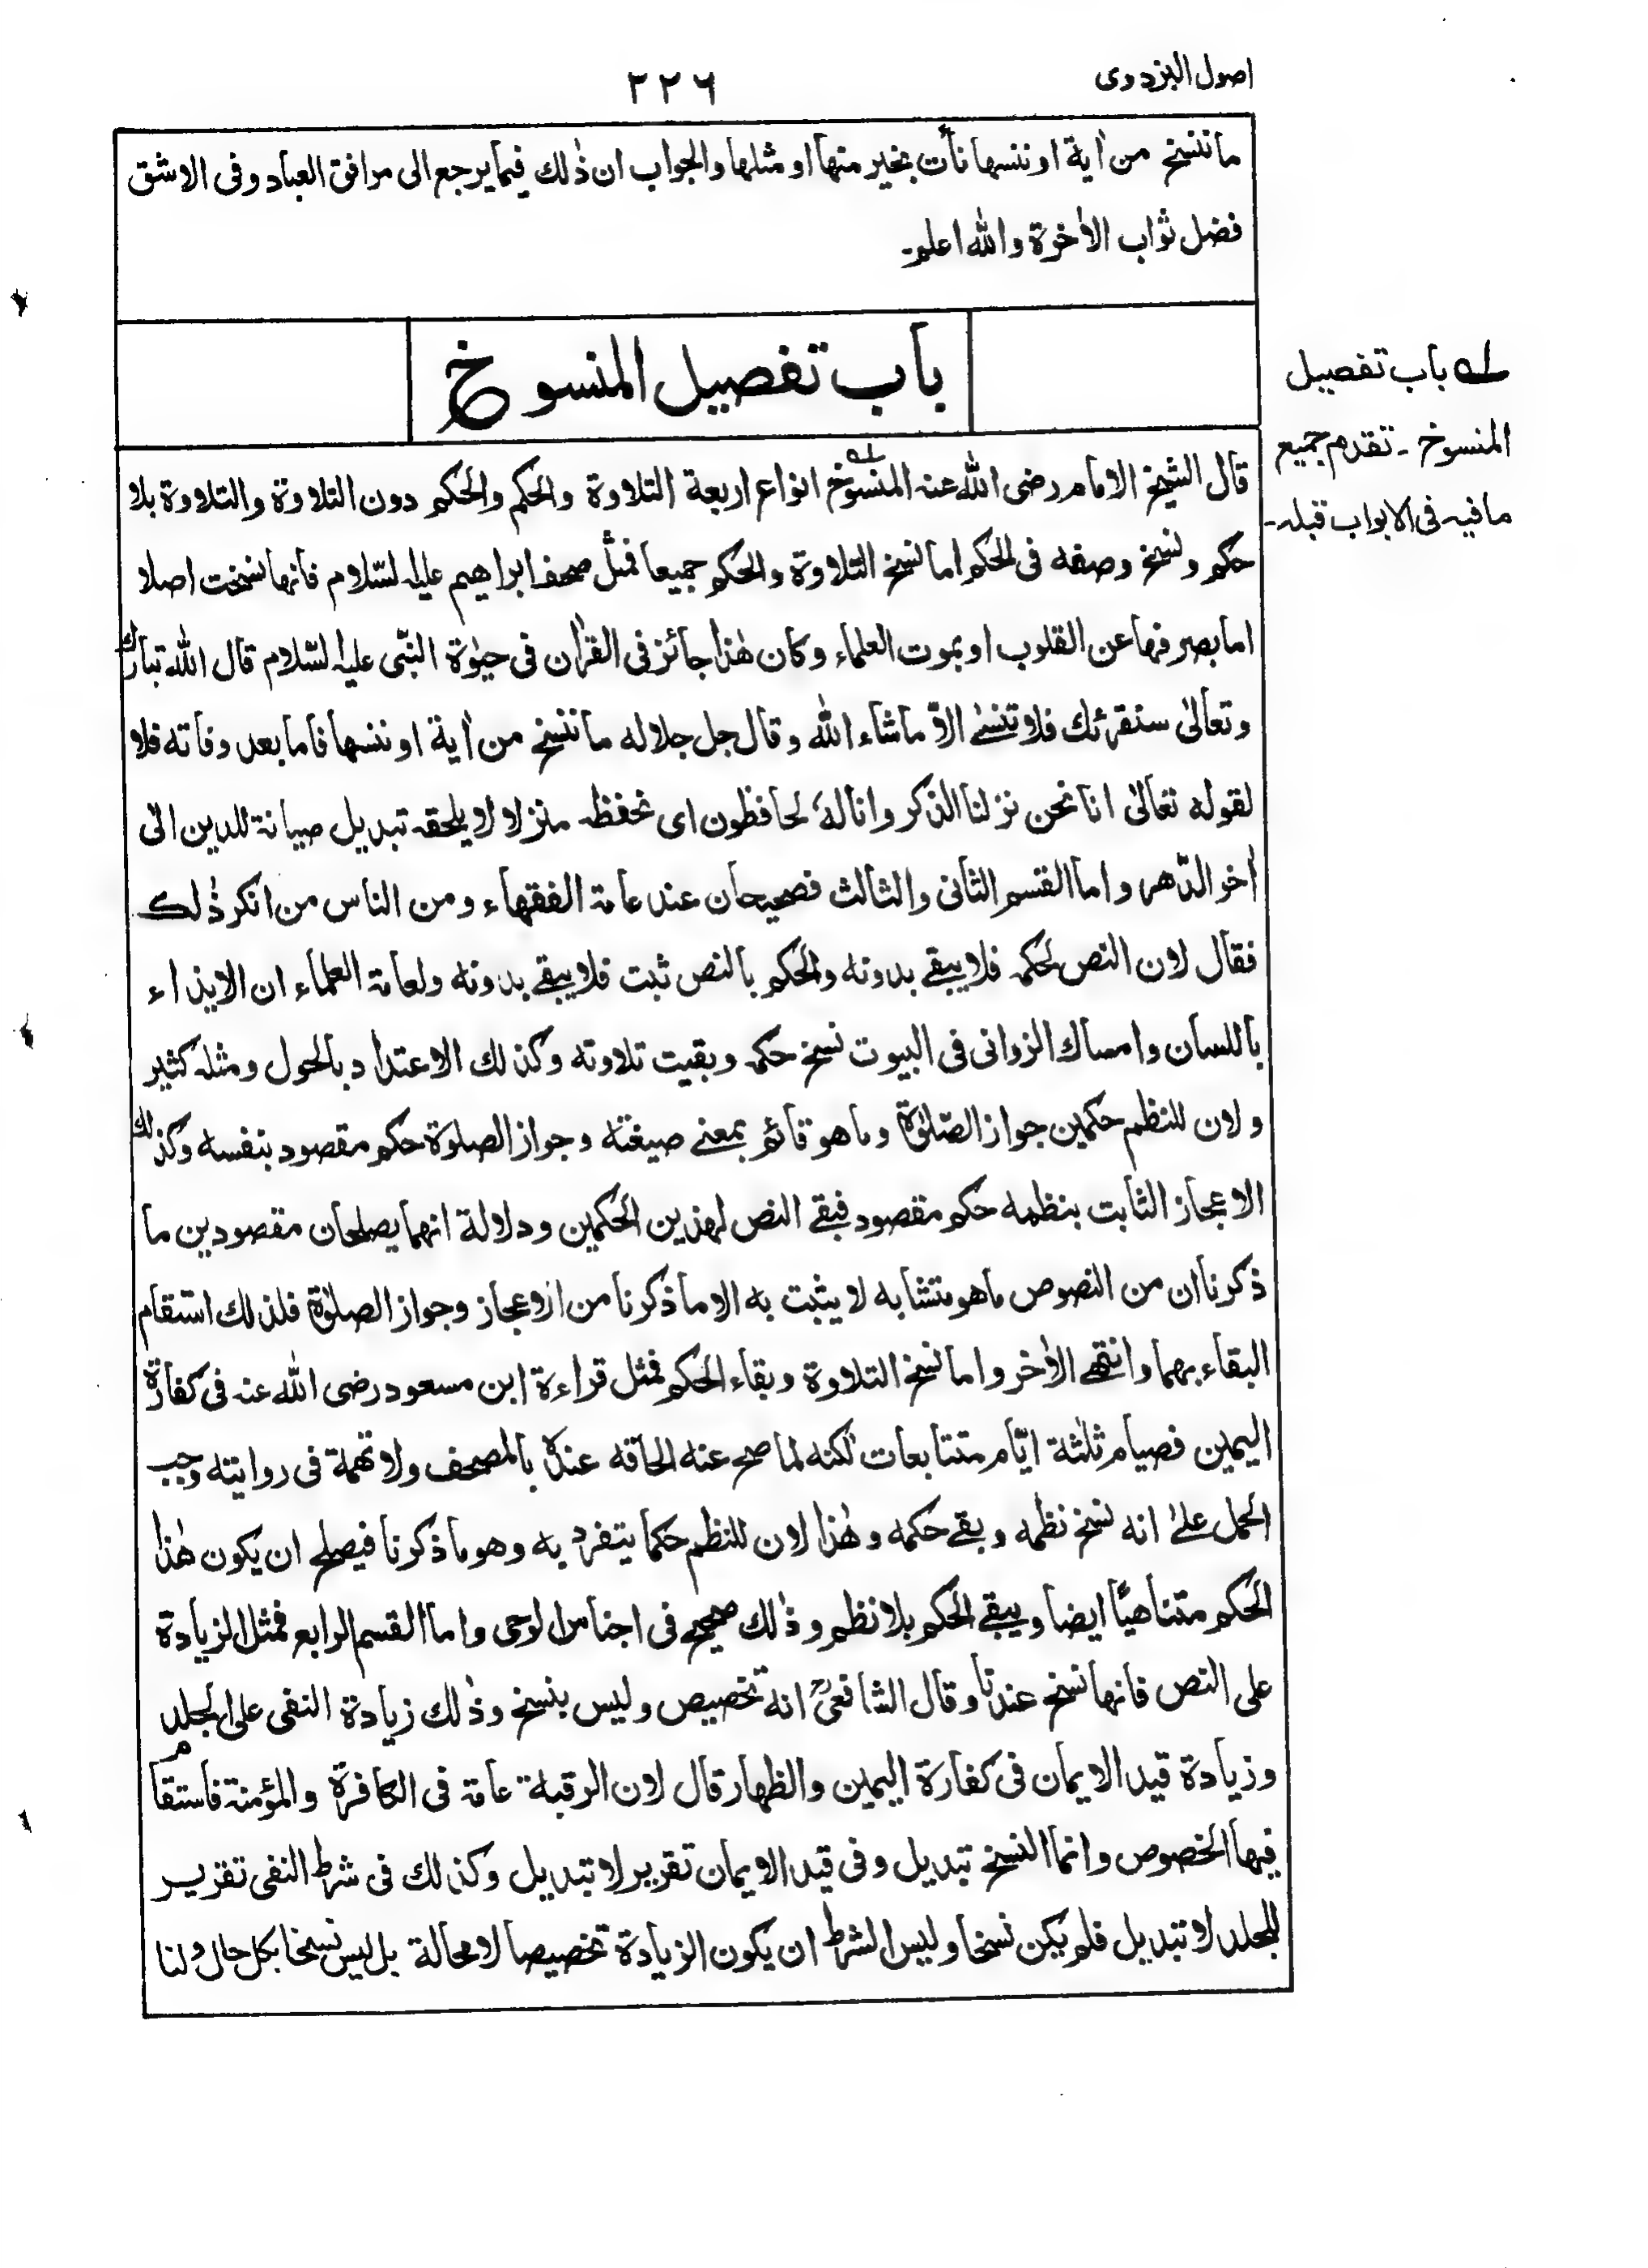 اصول البزدوی
۲۲۶
ما ننسخ من اٰية او ننسها نأت بخير منها او مثلها والجواب ان ذٰلك فيما يرجع الى مرافق العباد وفى الاشق
فضل ثواب الاٰخرة والله اعلم۔
باب تفصيل المنسوخ
قال الشيخ الامام رضى الله عنه المنسوخ انواع اربعة التلاوة والحكم والحكم دون التلاوة والتلاوة بلا
حكم ونسخ وصفه فى الحكم اما نسخ التلاوة والحكم جميعا فمثل صحف ابراهيم عليه السّلام فانها نسخت اصلا
اما بصرفها عن القلوب او بموت العلماء وكان هٰذا جائز فى القراٰن فى حيوٰة النبّى عليه السّلام قال الله تبارك
وتعالىٰ سنقرئك فلا تنسىٰ الاّ ماشاء الله وقال جل جلاله ما ننسخ من اٰية او ننسها فاما بعد وفاته فلا
لقوله تعالىٰ انا نحن نزلنا الذكر وانا لهٗ لحافظون اى نحفظه منزلا لا يلحقه تبديل صيانة للدين الىٰ
اٰخر الدّهر واما القسم الثانى والثالث فصحيحان عند عامة الفقهاء ومن الناس من انكر ذٰلك
فقال لان النص لحكمه فلا يبقے بدونه والحكم بالنص ثبت فلا يبقے بدونه ولعامة العلماء ان الايذاء
باللسان وامساك الزوانى فى البيوت نسخ حكمه وبقيت تلاوته وكذلك الاعتداد بالحول ومثله كثير
ولان للنظم حكمين جواز الصّلوٰة وما هو قائم بمعنے صيغته وجواز الصلوٰة حكم مقصود بنفسه وكذلك
الاعجاز الثابت بنظمه حكم مقصود فبقے النص لهذين الحكمين ودلالة انهما يصلحان مقصودين ما
ذكرنا ان من النصوص ما هو متشابه لا يثبت به الا ما ذكرنا من الاعجاز وجواز الصلوٰة فلذلك استقام
البقاء بهما وانتهے الاٰخر واما نسخ التلاوة وبقاء الحكم فمثل قراءة ابن مسعود رضى الله عنه فى كفارة
اليمين فصيام ثلثة ايّام متتابعات لٰكنه لما صح عنه الحاقه عندهٗ بالمصحف ولا تهمة فى روايته وجب
الحمل علےٰ انه نسخ نظمه وبقے حكمه وهٰذا لان للنظم حكما يتفرد به وهو ما ذكرنا فيصلح ان يكون هٰذا
الحكم متناهيًا ايضا ويبقے الحكم بلا نظم وذٰلك صحيح فى اجناس الوحى واما القسم الرابع فمثل الزيادة
على النص فانها نسخ عندنا وقال الشافعىؒ انه تخصيص وليس بنسخ وذٰلك زيادة النفى على الجلد
وزيادة قيد الايمان فى كفارة اليمين والظهار قال لان الرقبة عامة فى الكافرة والمؤمنة فاستقام
فيها الخصوص وانما النسخ تبديل وفى قيد الايمان تقرير لا تبديل وكذلك فى شرط النفى تقرير
للجلد لا تبديل فلم يكن نسخا وليس الشرط ان يكون الزيادة تخصيصا لا محالة بل ليس نسخا بكل حال ولنا
لـه باب تفصيل
المنسوخ ۔ تقدم جميع
ما فيه فى الابواب قبله۔